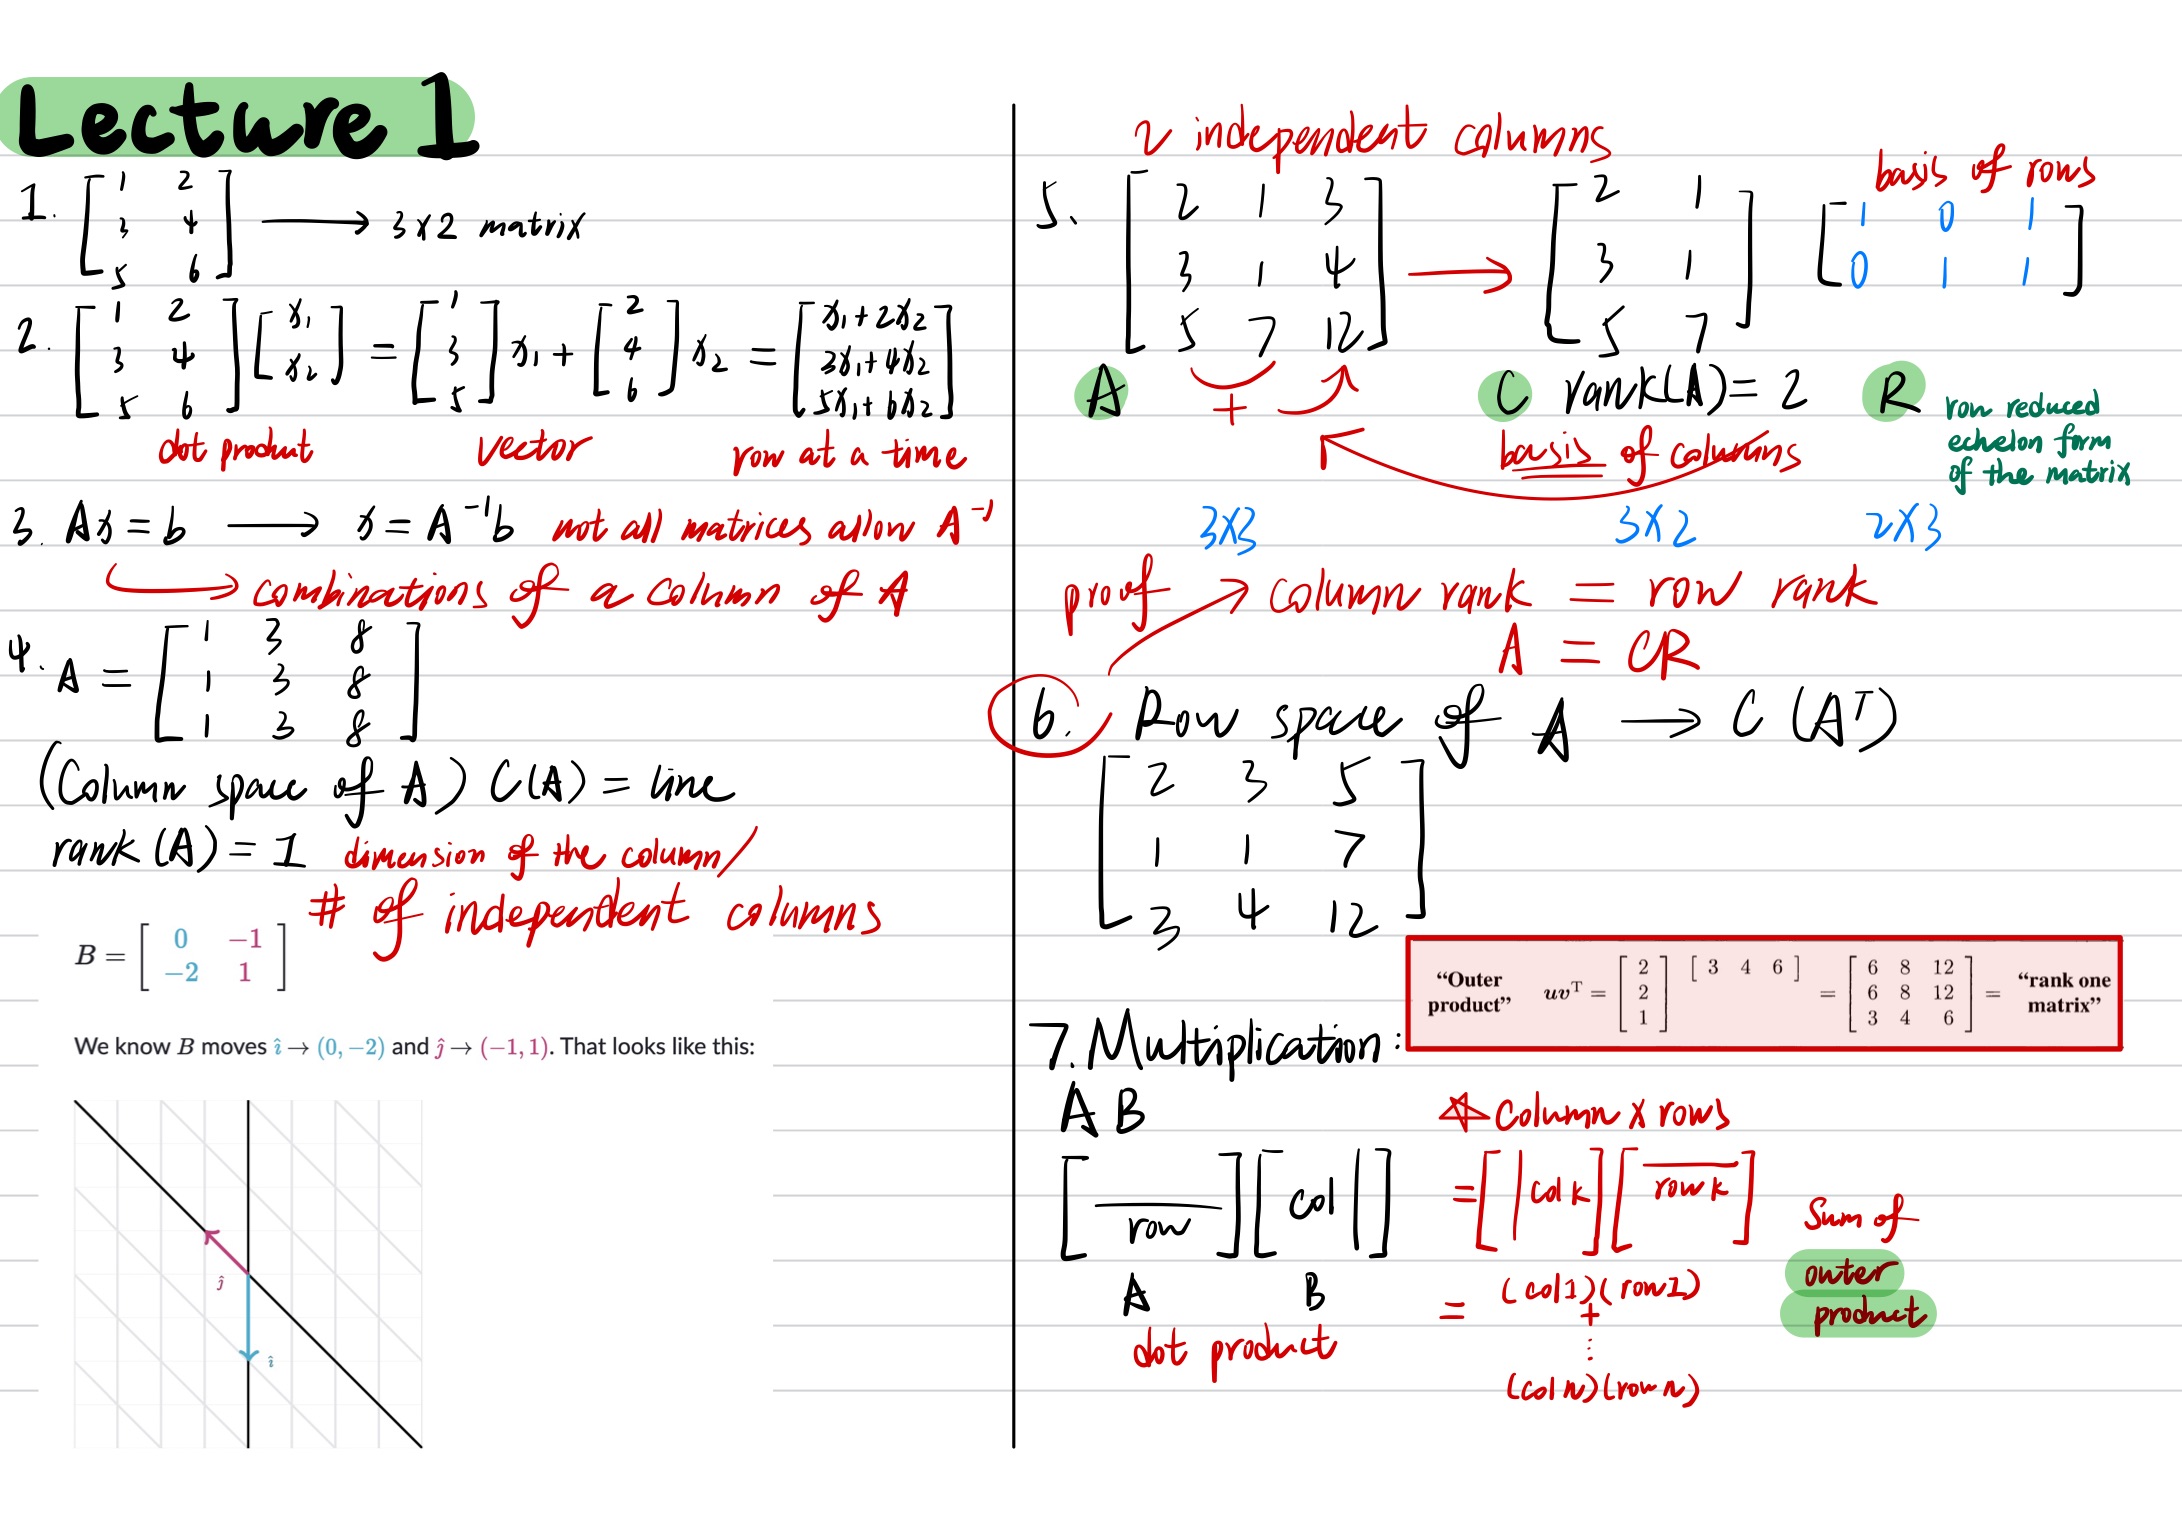 Lecture 1
1. [1 2; 3 4; 5 6] ⟶ 3×2 matrix
2. [1 2; 3 4; 5 6] [x₁; x₂] = [1; 3; 5] x₁ + [2; 4; 6] x₂ = [x₁+2x₂; 3x₁+4x₂; 5x₁+6x₂]
dot product vector row at a time
3. Ax = b ⟶ x = A⁻¹b not all matrices allow A⁻¹
combinations of a column of A
4. A = [1 3 8; 1 3 8; 1 3 8]
(Column space of A) C(A) = line
rank (A) = 1 dimension of the column/
# of independent columns
B = [0 −1; −2 1]
We know B moves î → (0, −2) and ĵ → (−1, 1). That looks like this:
ĵ
î
2 independent columns
basis of rows
5. [2 1 3; 3 1 4; 5 7 12] ⟶ [2 1; 3 1; 5 7] [1 0 1; 0 1 1]
A + C rank(A) = 2 R row reduced
echelon form
of the matrix
basis of columns
3×3 3×2 2×3
proof column rank = row rank
A = CR
6. Row space of A ⟶ C (Aᵀ)
[2 3 5; 1 1 7; 3 4 12]
“Outer product” uvᵀ = [2; 2; 1] [3 4 6] = [6 8 12; 6 8 12; 3 4 6] = “rank one matrix”
7. Multiplication:
A B ☆ Column × rows
[row] [col |] = [| col k] [row k]
A B
dot product
= (col 1)(row 1)
+
⋮
(col n)(row n)
Sum of
outer
product